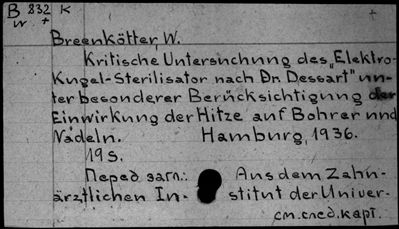 B 832 K
W. +
Breenkötter, W.
Kritische Untersuchung des „Elektro-
Kugel-Sterilisator nach Dr. Dessart" un-
ter besonderer Berücksichtigung der
Einwirkung der Hitze auf Bohrer und
Nadeln. Hamburg, 1936.
19 s.
Перед загл.: Aus dem Zahn-
ärztlichen In- stitut der Univer-
см.след.карт.